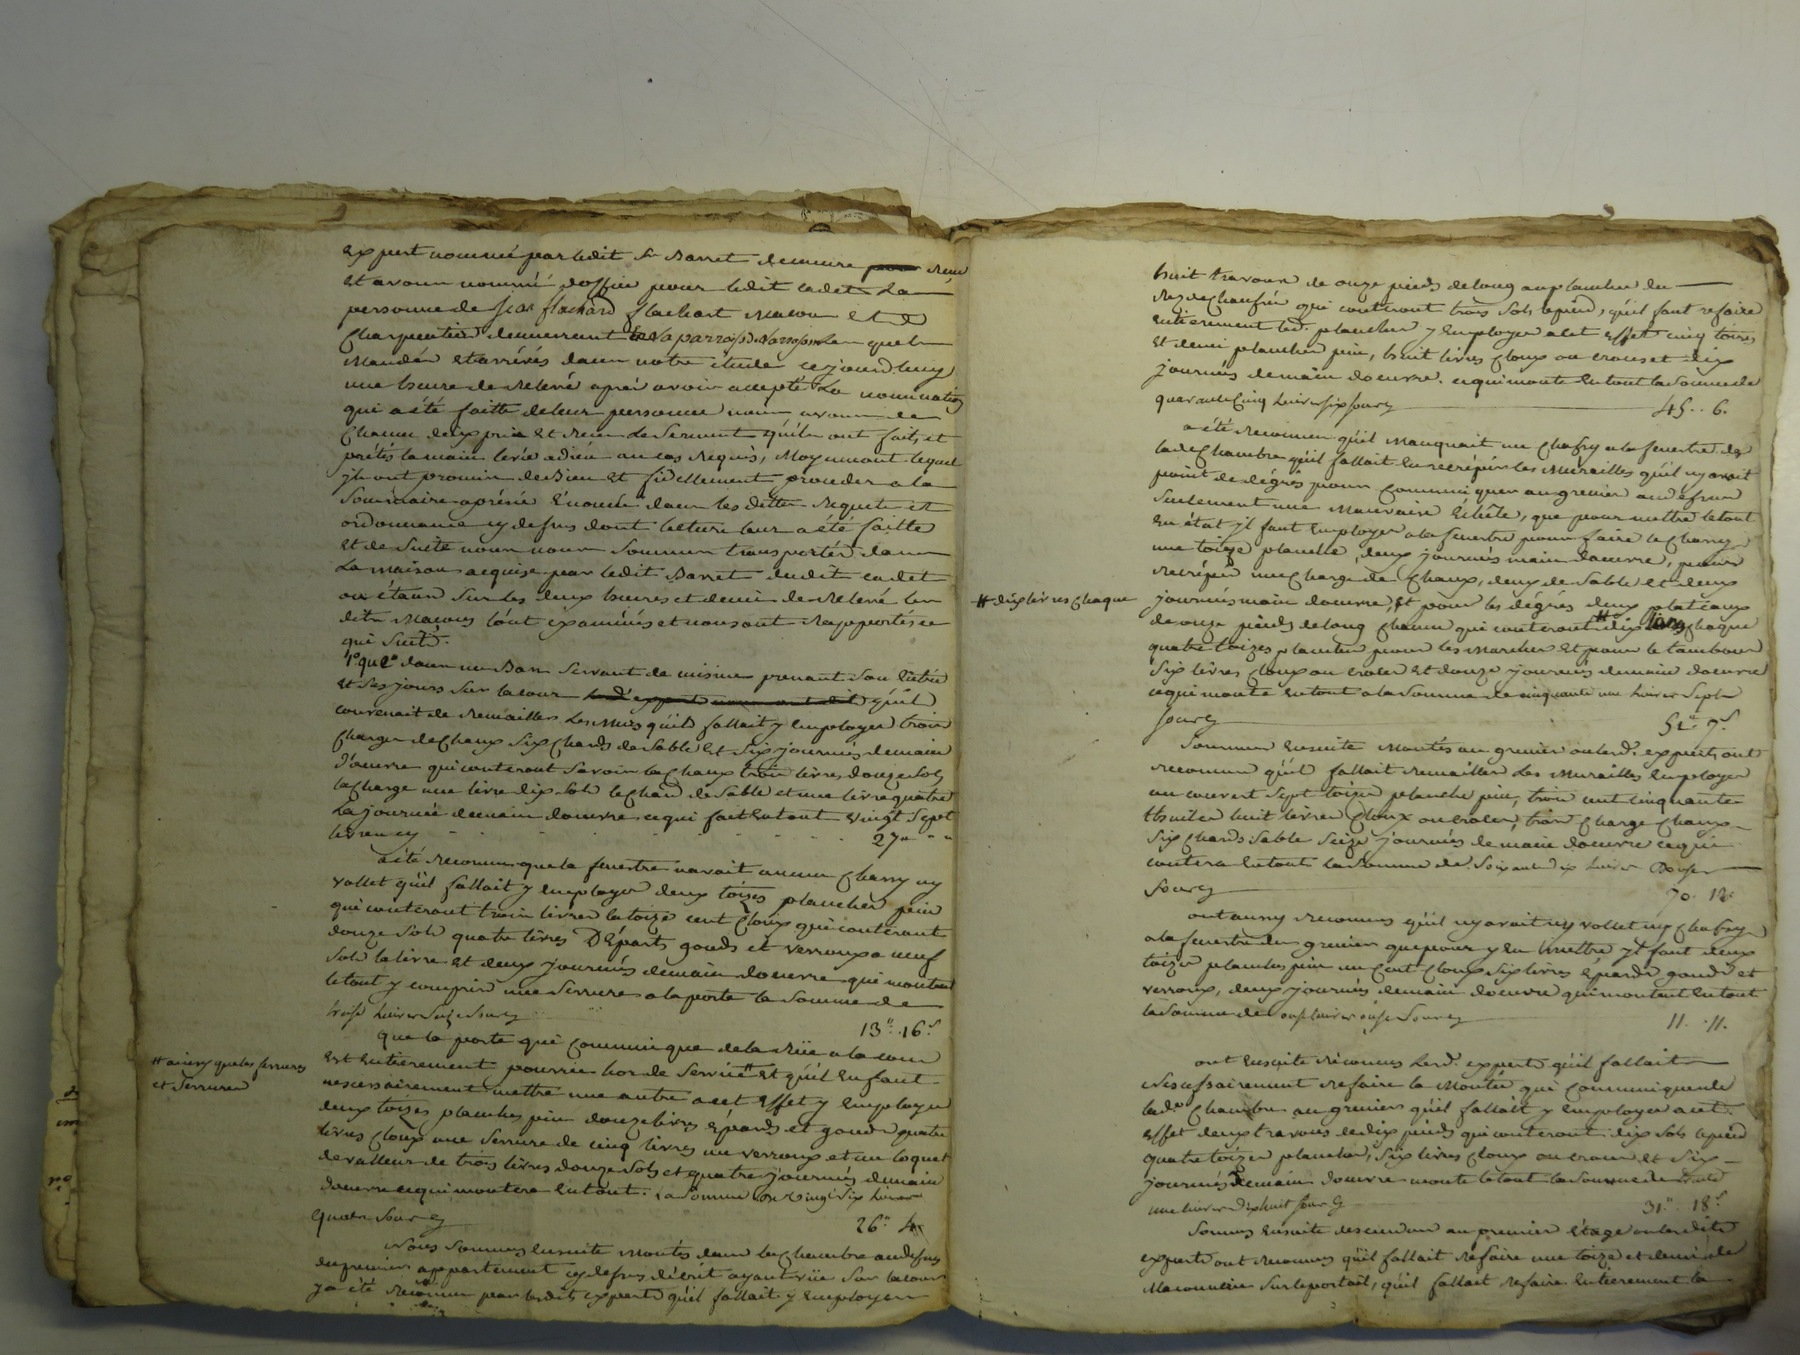 Expert nommé par ledit Sr Barret demeure pour
Et avons nommé d'office pour ledit cadet La
personne de Jean flachard flachart Macon Et
Charpentier demeurant En La parroisse
Mandés Et arrivés dans notre étude cejourd'huy
une heure de Relevé aprés avoir accepté La nomination
qui a été faitte de leur personne nous avons de
Chacun deux pris Et Recu Le Serment qu'ils ont fait et
prétés la main levée a dieu au cas Requis, Moyennant lequel
jls ont promis de Bien Et fidellement proceder a la
Sommaire aprisie Enoncée dans les dittes Requete et
ordonnance cy dessus dont lecture leur a été faitte
Et de Suite nous nous Sommes transportés dans
La maison acquise par ledit Barret dudit cadet
ou étant Sur les deux heures et demie de Relevé les
dits Macons l'ont examinés et nous ont Rapportés ce
qui Suit.
1° que dans un Bas Servant de cuisine prenant Son Entrée
Et Ses jours Sur la cour qu'il
convenait de Remailler Les Murs qu'il fallait y Employer trois
Charges de Chaux Six Chards de Sable Et Six journées de main
d'oeuvre qui couteront Savoir la Chaux trois livres douze Sols
la Charge une livre dix Sols le Chard de Sable et une livre quatre
La journée de main d'oeuvre ce qui fait En tout vingt Sept
livres cy 27
a été reconnu que la fenestre n'avait aucun Chassy ny
vollet qu'il fallait y Employer deux toizes planches pin
qui couteront trois livres la toize cent Cloux qui couteront
douze Sols quatre livres D'Epars gonds et verroux a neuf
Sols la livre Et deux journées de main d'oeuvre qui montent
le tout y compris une Serrure a la porte la Somme de
treize Livres Seize Sous cy
13" 16s
Que la porte qui Communique de la Rüe a la cour
# ainsy que les ferrures
et Serrures
Est Entierement pourrie hors de Service # Et qu'il En faut
necessairement mettre une autre a cet Effet y Employer
deux toizes planches pin douze livres Epards et gonds quatre
livres Cloux une Serrure de cinq livres un verroux et un loquet
de valleur de trois livres douze Sols et quatre journées de main
d'oeuvre ce qui montera En tout. La Somme de vingt Six Livres
Quatre Sous cy 26" 4s
Nous Sommes Ensuite Montés dans la Chambre au dessus
du premier appartement cy dessus décrit ayant vüe Sur la cour
y a été Reconnu par lesdits experts qu'il fallait y Employer
huit travons de onze pieds de long au plancher du
Rez de Chaussée qui couteront trois Sols le pied, qu'il faut refaire
Entierement led. plancher y Employer a cet Effet cinq toizes
Et demi planches pin, huit livres Cloux ou crosses et dix
journées de main d'oeuvre. ce qui monte En tout la Somme de
quarante Cinq Livres six sous cy 45.. 6.
a été Reconnu qu'il Manquait un Chassy a la fenestre de
lade Chambre qu'il fallait En recrépir les Murailles qu'il n'y avait
point de dégrés pour Communiquer au grenier au dessus
Seulement une Mauvaise Echéle, que pour mettre le tout
En état jl faut Employer a la fenestre pour faire le Chassy
une toize planche, deux journées main d'oeuvre, pour
Recrépir une Charge de Chaux, deux de Sable et deux
# dix livres Chaque
journées main d'oeuvre, Et pour les dégrés deux plateaux
de onze pieds de long Chacun qui couteront # dix livres Chaque
quatre toizes planches pour les Marches Et pour le tambour
Six livres Cloux ou Et douze journées de main d'oeuvre
ce qui monte En tout a la Somme de cinquante une Livres Sept
Sous cy 51" 7s
Sommes Ensuite Montés au grenier ou lesd. experts ont
reconnu qu'il fallait Remailler Les Murailles Employer
au couvert Sept toizes planche pin, trois cent cinquante
thuiles huit livres Cloux ou , trois Charges Chaux
Six Chards Sable Seize journées de main d'oeuvre ce qui
coutera En tout la Somme de Soixante dix Livres Douze
Sous cy 70. 12.
ont aussy reconnus qu'il n'y avait ny vollet ny Chassy
a la fenestre du grenier que pour y En mettre jl faut deux
toizes planches pin un Cent Cloux Six livres Epards gonds et
verroux, deux journées de main d'oeuvre qui montent En tout
la Somme de onze Livres onze Sous cy 11. .11.
ont Ensuite reconnus Lesd. experts qu'il fallait
Nescessairement Refaire la Montée qui Communique de
lade Chambre au grenier qu'il fallait y Employer a cet
Effet deux travons de dix pieds qui couteront dix Sols le pied
quatre toizes planches, Six livres Cloux ou Et Six
journées de main d'oeuvre monte le tout la Somme de trente
une Livres Dix huit sous cy 31" 18s
Sommes Ensuite descendus au premier Etage ou lesdits
experts ont Reconnus qu'il fallait Refaire une toize et demie de
Maconnerie Sur le portail, qu'il fallait Refaire Entierement la